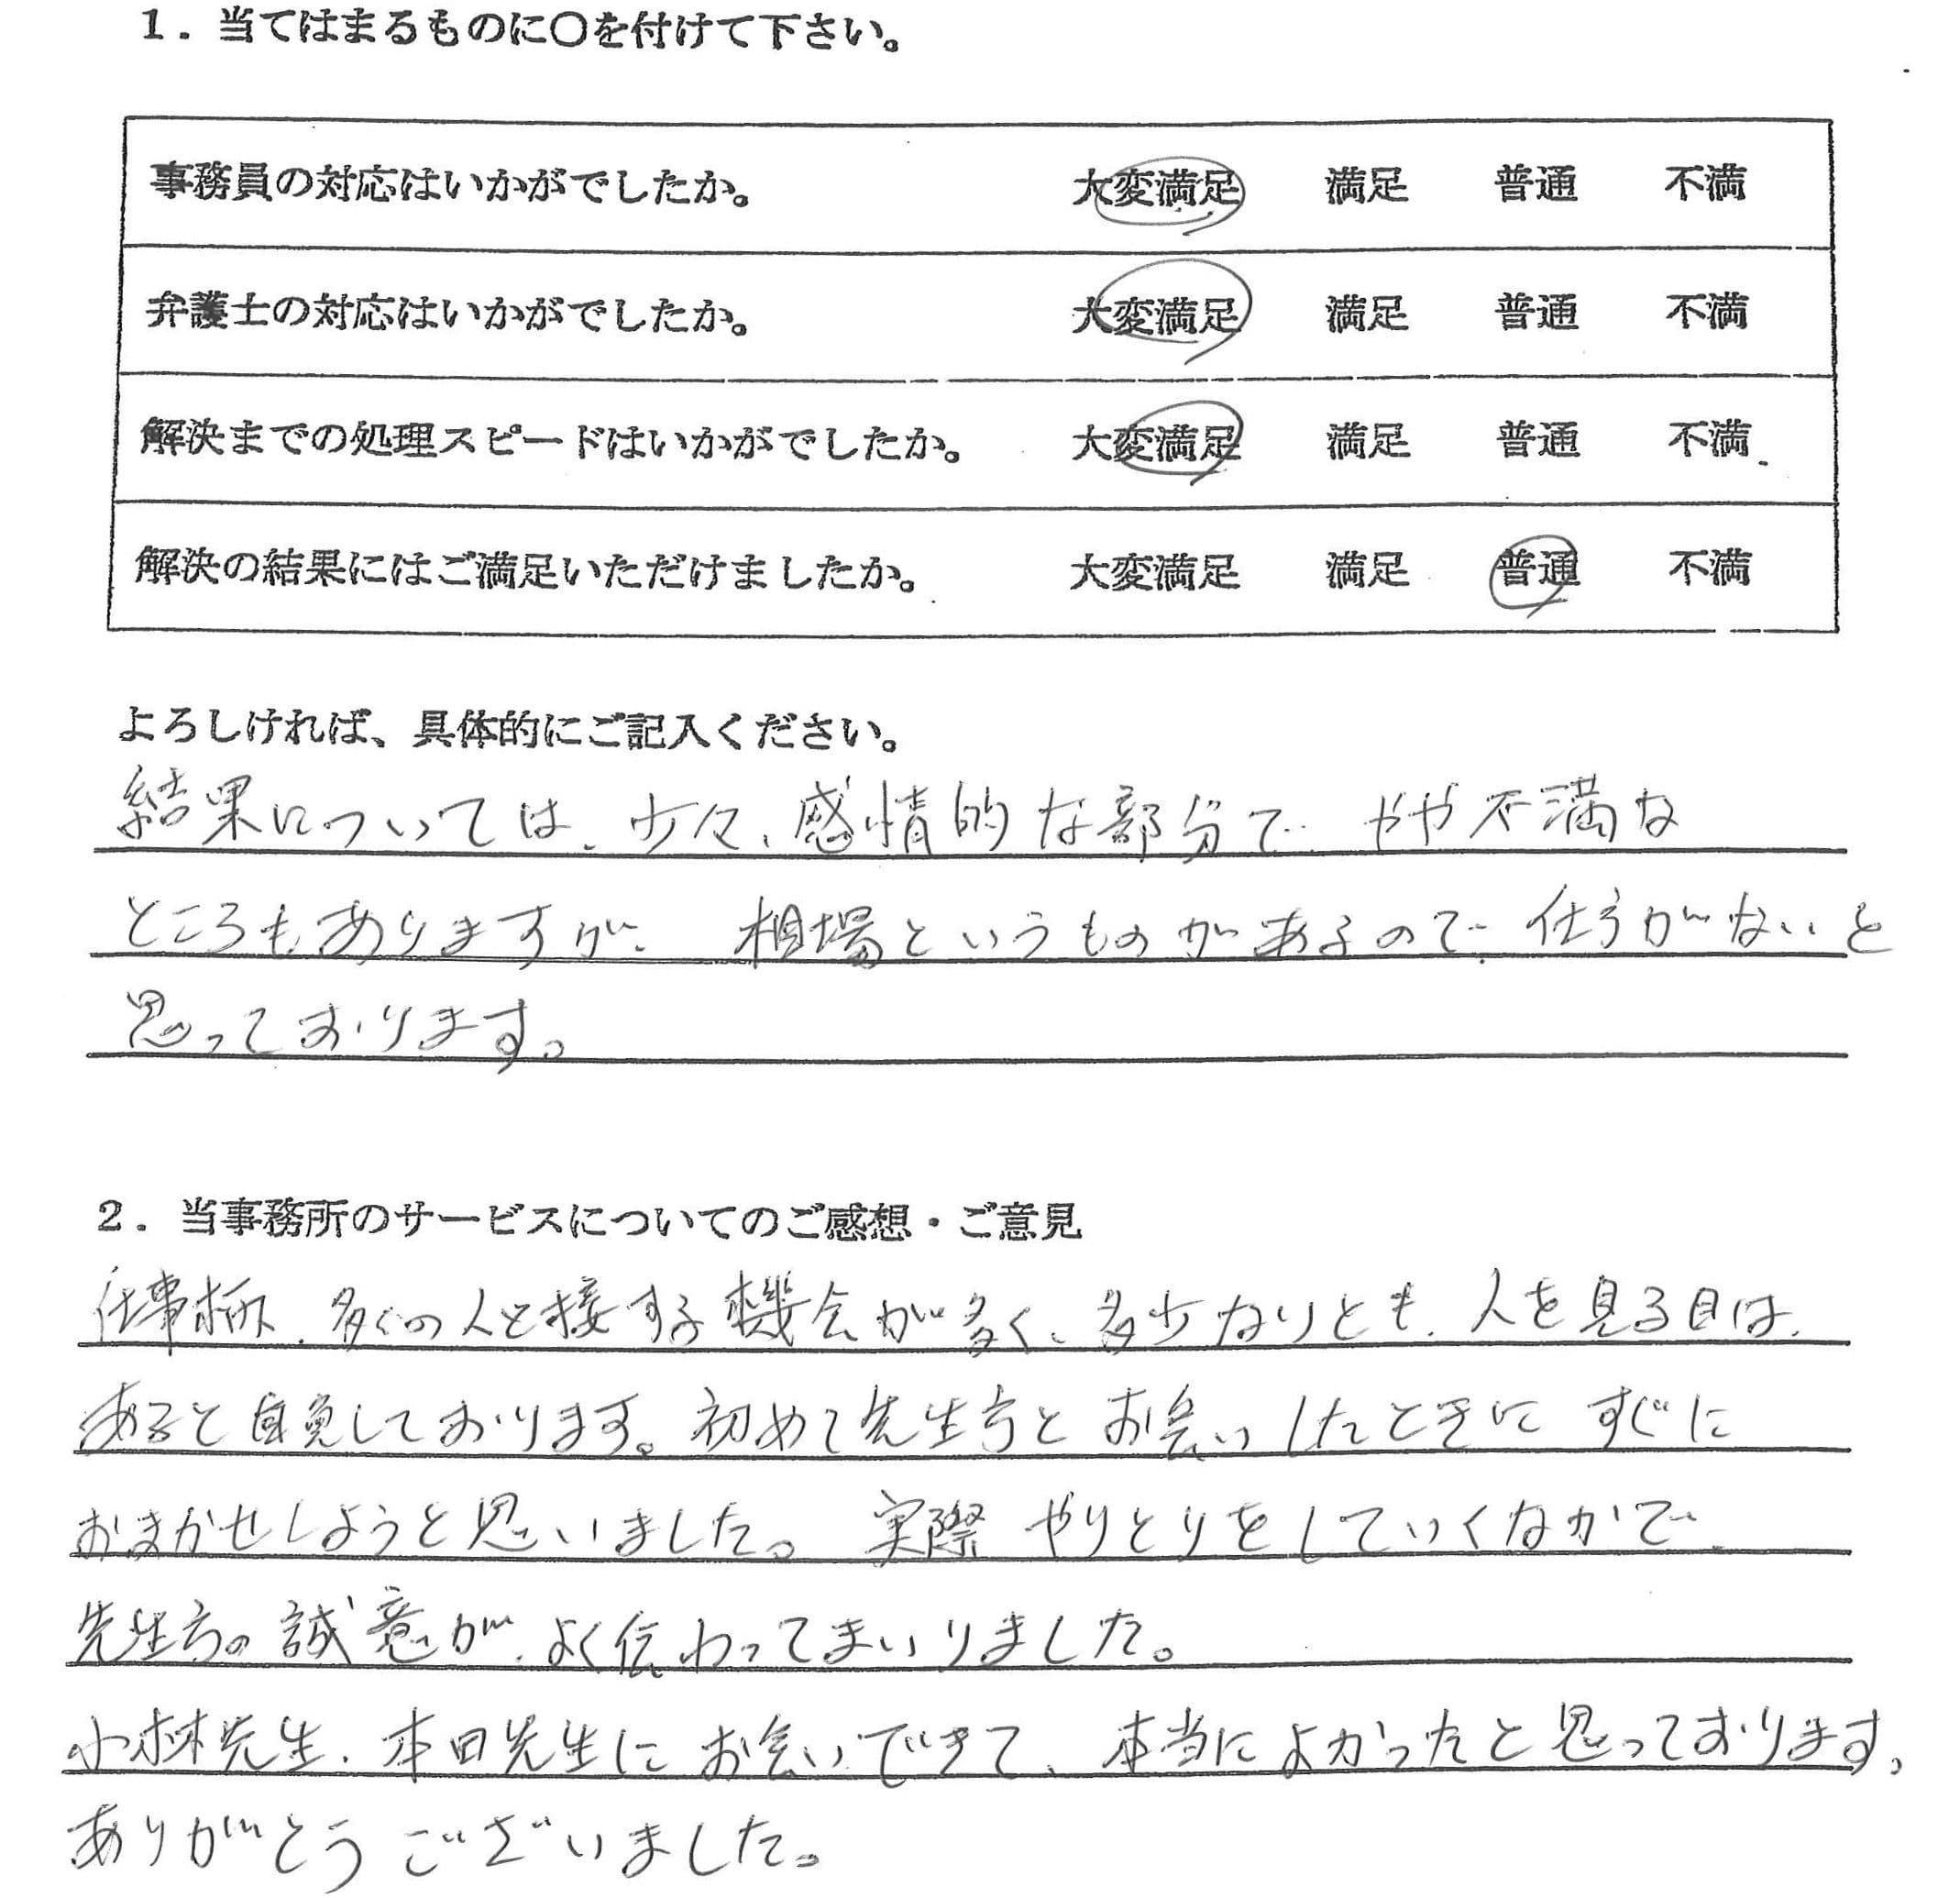 1．当てはまるものに〇を付けて下さい。
事務員の対応はいかがでしたか。　大変満足　満足　普通　不満
弁護士の対応はいかがでしたか。　大変満足　満足　普通　不満
解決までの処理スピードはいかがでしたか。　大変満足　満足　普通　不満
解決の結果にはご満足いただけましたか。　大変満足　満足　普通　不満
よろしければ、具体的にご記入ください。
結果については、少々、感情的な部分で、やや不満な
ところもありますが、相場というものがあるので、仕方がないと
思っております。
2．当事務所のサービスについてのご感想・ご意見
仕事柄、多くの人と接する機会が多く、多少なりとも、人を見る目は、
あると自負しております。初めて先生方とお会いしたときにすぐに
おまかせしようと思いました。実際やりとりをしていくなかで、
先生方の誠意が、よく伝わってまいりました。
小林先生、本田先生にお会いできて、本当によかったと思っております、
ありがとうございました。